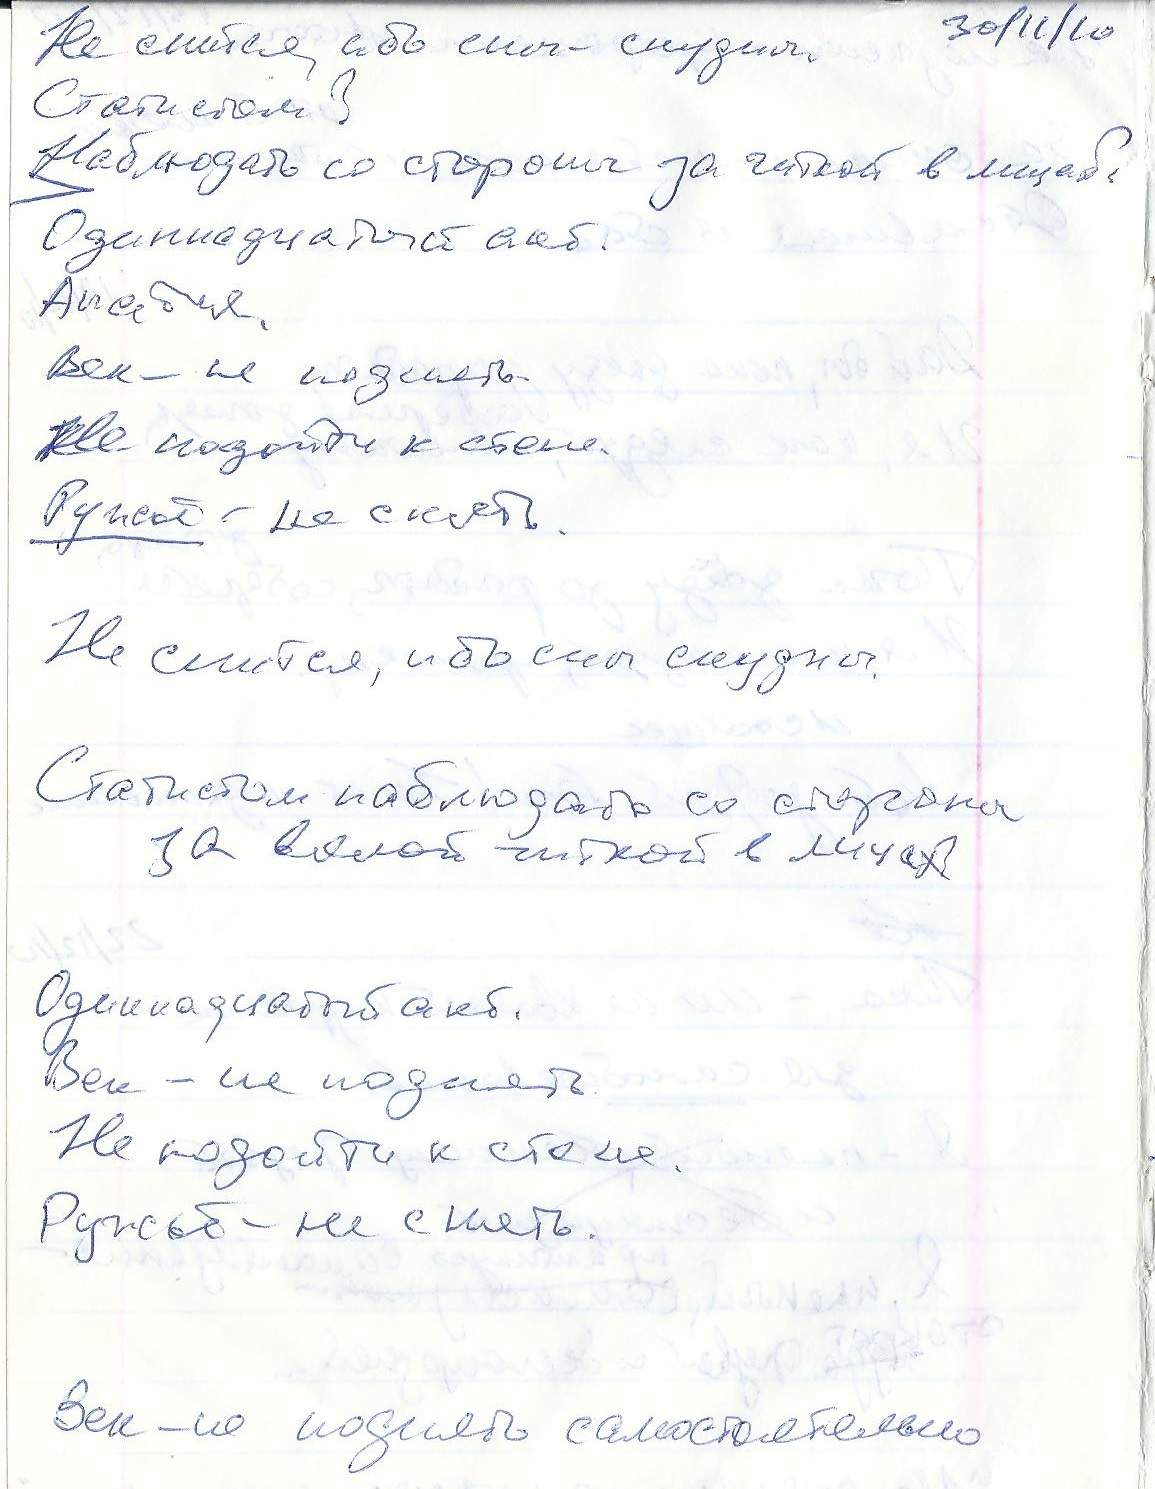 Не спится, ибо сны – скудны. 30/11/10
Статистом?
Наблюдать со стороны за читкой в лицах.
Одиннадцатый акт.
Апатия.
Век – не поднять.
Не подойти к стене.
Ружьё – не снять.
Не спится, ибо сны скудны.
Статистом наблюдать со стороны
за вялой читкой в лицах
Одиннадцатый акт.
Век – не поднять.
Не подойти к стене.
Ружьё – не снять.
Век – не поднять самостоятельно